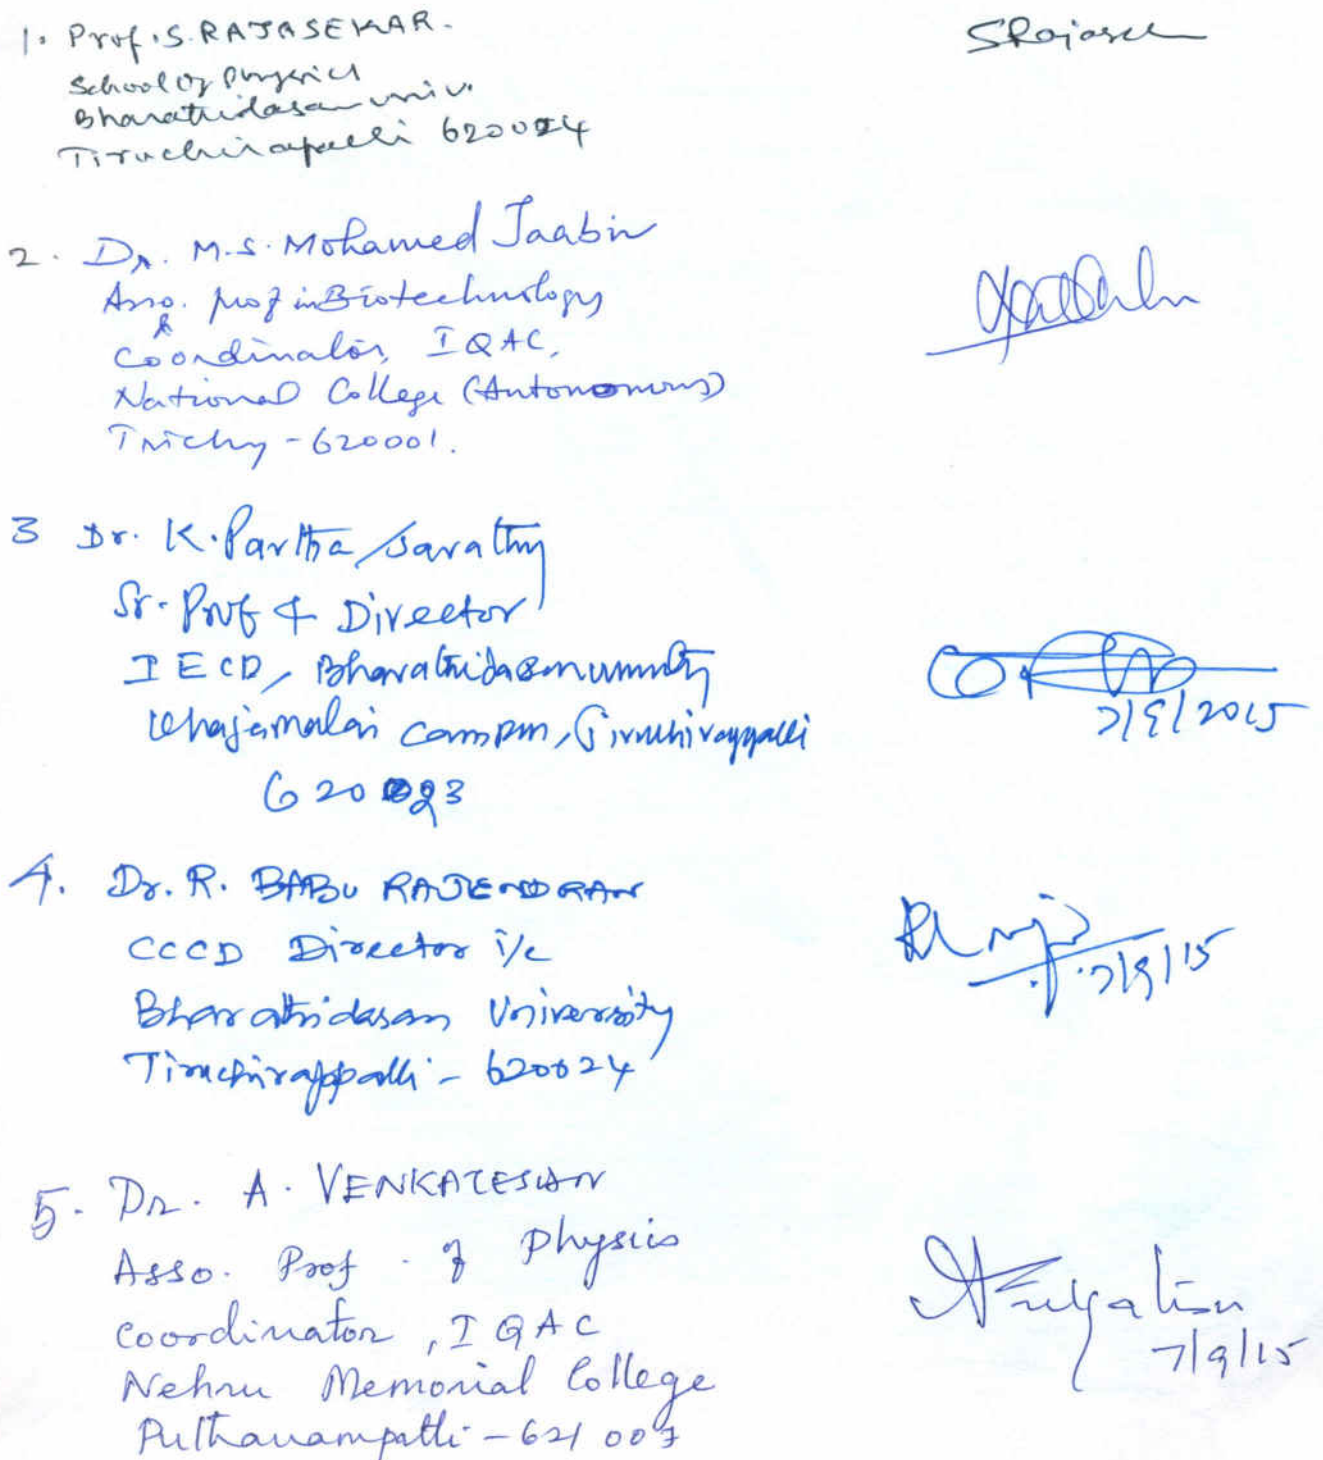 1. Prof. S. RAJASEKAR. SRajasek
School of Physics
Bharathidasan univ.
Tiruchirapalli 620024
2. Dr. M.S. Mohamed Jaabir
Asso. Prof in Biotechnology
&
Coordinator, IQAC,
National College (Autonomous)
Trichy - 620001.
3 Dr. K. Partha Sarathy
Sr. Prof & Director
IECD, Bharathidasan university
Khajamalai Campus, Tiruchirappalli
7/9/2015
620023
4. Dr. R. BABU RAJENDRAN
CCCD Director i/c
7/9/15
Bharathidasan University
Tiruchirappalli - 620024
5. Dr. A. VENKATESAN
Asso. Prof. of Physics
Coordinator, IQAC
7/9/15
Nehru Memorial College
Puthanampatti - 621 007